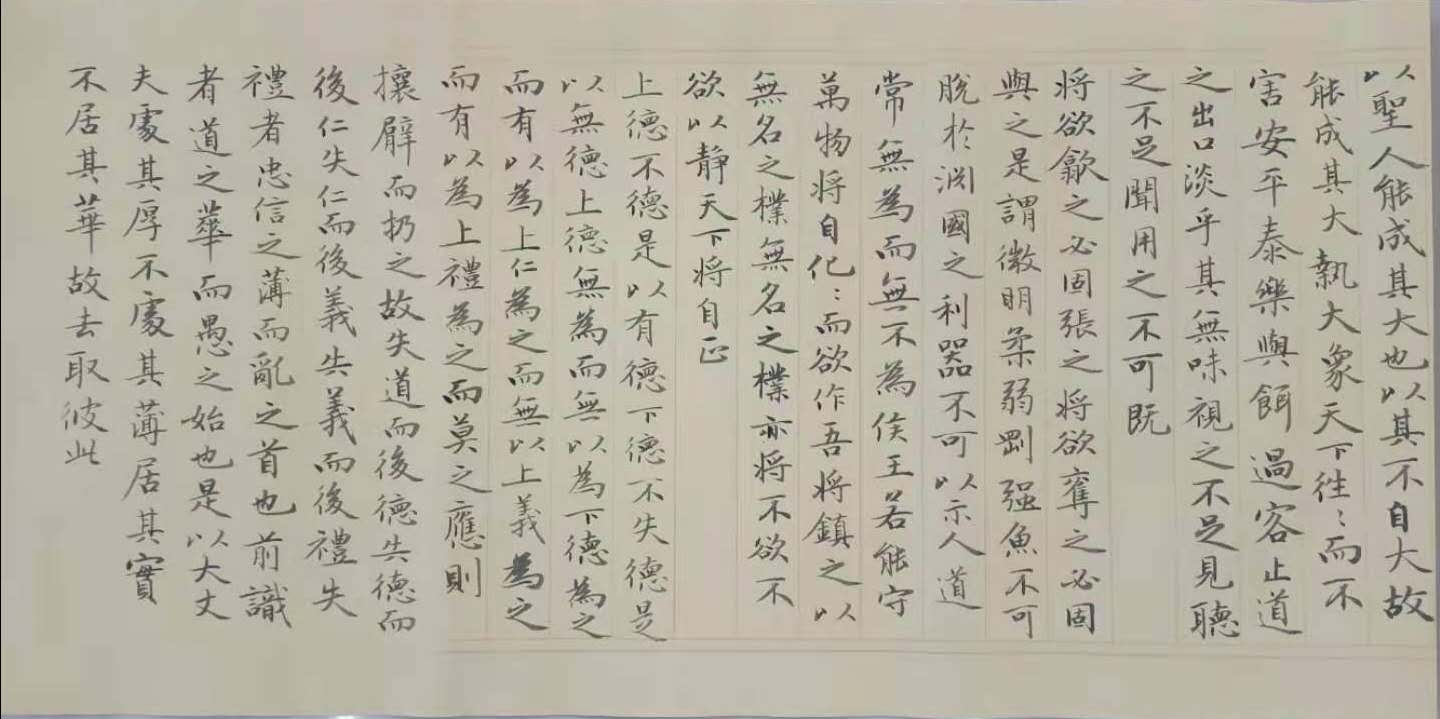 以聖人能成其大也以其不自大故
能成其大執大象天下往〻而不
害安平泰樂與餌過客止道
之出口淡乎其無味視之不足見聽
之不足聞用之不可既
将欲歙之必固張之将欲奪之必固
與之是謂微明柔弱勝剛强魚不可
脫於淵國之利器不可以示人道
常無為而無不為侯王若能守
萬物将自化〻而欲作吾将鎮之以
無名之樸無名之樸亦将不欲不
欲以靜天下将自正
上德不德是以有德下德不失德是
以無德上德無為而無以為下德為之
而有以為上仁為之而無以上義為之
而有以為上禮為之而莫之應則
攘臂而扔之故失道而後德失德而
後仁失仁而後義失義而後禮失
禮者忠信之薄而亂之首也前識
者道之華而愚之始也是以大丈
夫處其厚不處其薄居其實
不居其華故去取彼此